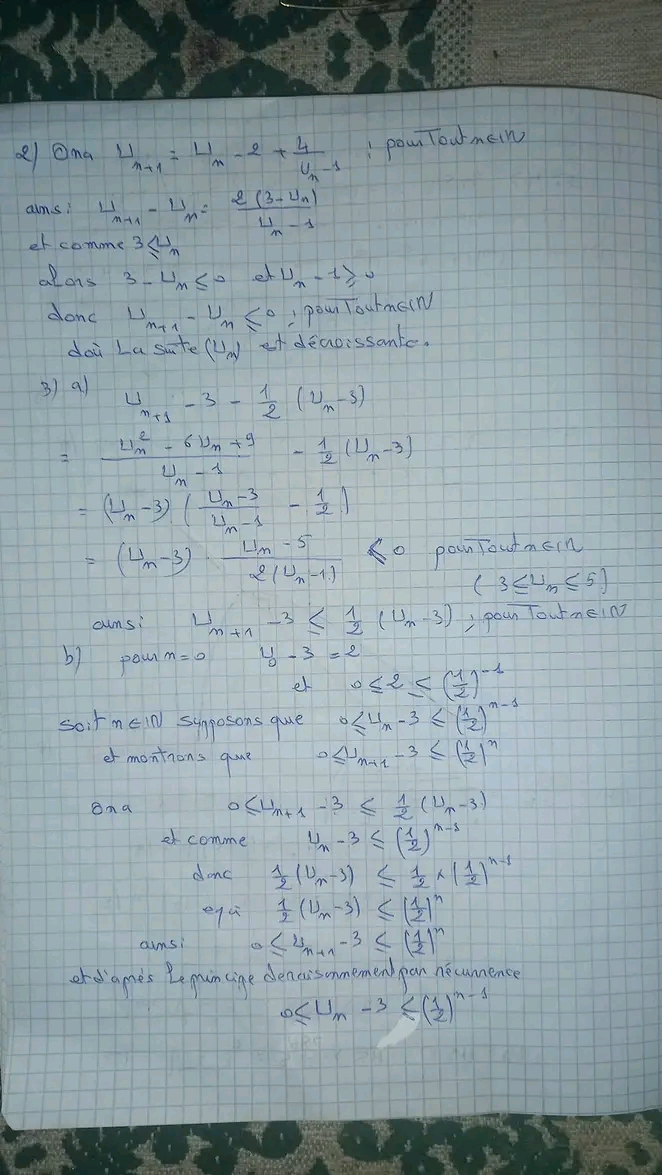 2) Ona U_{n+1} = U_n - 2 + \frac{4}{U_n - 1} ; pour Tout n∈IN
ainsi U_{n+1} - U_n = \frac{2(3-U_n)}{U_n - 1}
et comme 3 ≤ U_n
alors 3 - U_n ≤ 0 et U_n - 1 ≥ 0
donc U_{n+1} - U_n ≤ 0 ; pour Tout n∈IN
d'où La suite (U_n) est décroissante.
3) a) U_{n+1} - 3 - \frac{1}{2} (U_n - 3)
= \frac{U_n^2 - 6U_n + 9}{U_n - 1} - \frac{1}{2} (U_n - 3)
= (U_n - 3) ( \frac{U_n - 3}{U_n - 1} - \frac{1}{2} )
= (U_n - 3) . \frac{U_n - 5}{2(U_n - 1)} ≤ 0 pour Tout n∈IN
( 3 ≤ U_n ≤ 5 )
ainsi U_{n+1} - 3 ≤ \frac{1}{2} (U_n - 3) ; pour Tout n∈IN
b) pour n=0 U_0 - 3 = 2
et 0 ≤ 2 ≤ (\frac{1}{2})^{-1}
soit n∈IN supposons que 0 ≤ U_n - 3 ≤ (\frac{1}{2})^{n-1}
et montrons que 0 ≤ U_{n+1} - 3 ≤ (\frac{1}{2})^n
Ona 0 ≤ U_{n+1} - 3 ≤ \frac{1}{2} (U_n - 3)
et comme U_n - 3 ≤ (\frac{1}{2})^{n-1}
donc \frac{1}{2} (U_n - 3) ≤ \frac{1}{2} × (\frac{1}{2})^{n-1}
\frac{1}{2} (U_n - 3) ≤ (\frac{1}{2})^n
ainsi 0 ≤ U_{n+1} - 3 ≤ (\frac{1}{2})^n
et d'après le principe de raisonnement par récurrence
0 ≤ U_n - 3 ≤ (\frac{1}{2})^{n-1}